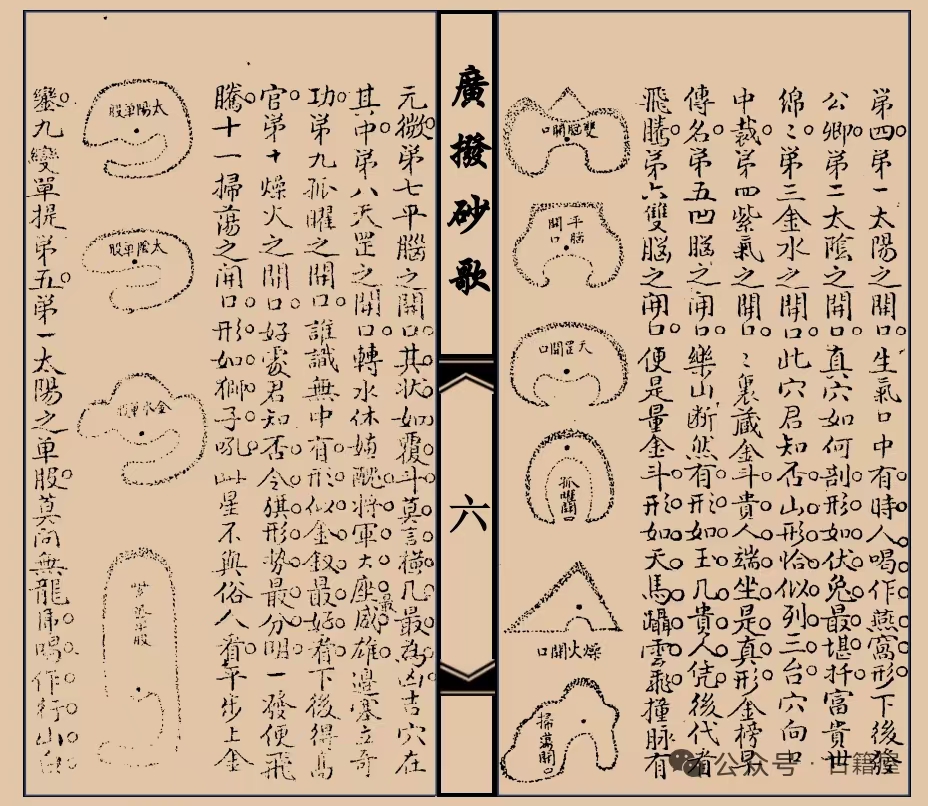 第四第一太陽之開口生氣口中有時人喝作燕窩形下後發
公卿第二太陰之開口真穴如何剖形如伏兔最堪扦富貴世
綿〻第三金水之開口此穴君知否山形恰似列三台穴向
中裁第四紫氣之開口〻裏藏金斗貴人端坐是真形金榜
傳名第五凹腦之開口樂山断然有形如玉几貴人凭後代看
飛騰第六雙腦之開口便是量金斗形如天馬躡雲飛撞脉有
雙腦開口
平腦開口
天罡開口
孤曜開口
燥火開口
掃蕩開口
廣撥砂歌
六
元微第七平腦之開口其状如覆斗莫言橫几最為凶吉穴在
其中第八天罡之開口轉水休嫌醜將軍大座最威雄邊塞立奇
功第九孤曜之開口誰識無中有形似金釵最好看下後得高
官第十燥火之開口好處君知否令旗形势最分明一發便飛
騰十一掃蕩之開口形如獅子吼此星不與俗人看平步上金
鑾九變單提第五第一太陽之单股莫向無龍虎喝作行山
太陽单股
太陰单股
金水单股
紫氣单股
公众号·古籍屋